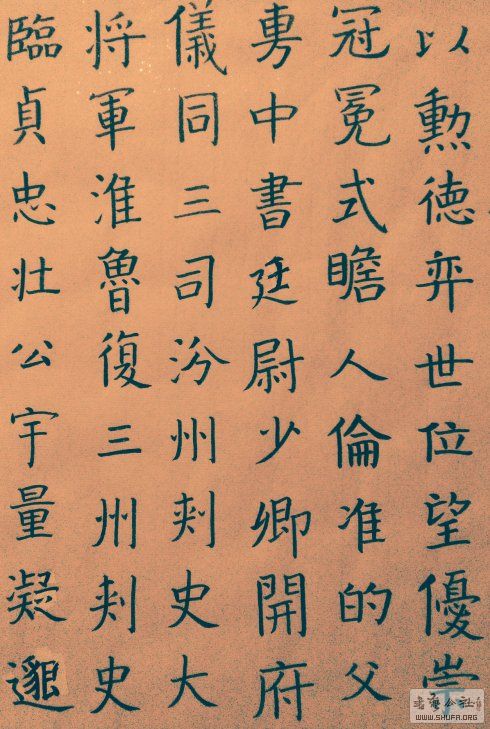 以勲德弈世位望優崇
冠冕式瞻人倫准的父
旉中書廷尉少卿開府
儀同三司汾州刺史大
将軍淮魯復三州刺史
臨貞忠壯公宇量凝邈
書法公社
WWW.SHUFA.ORG